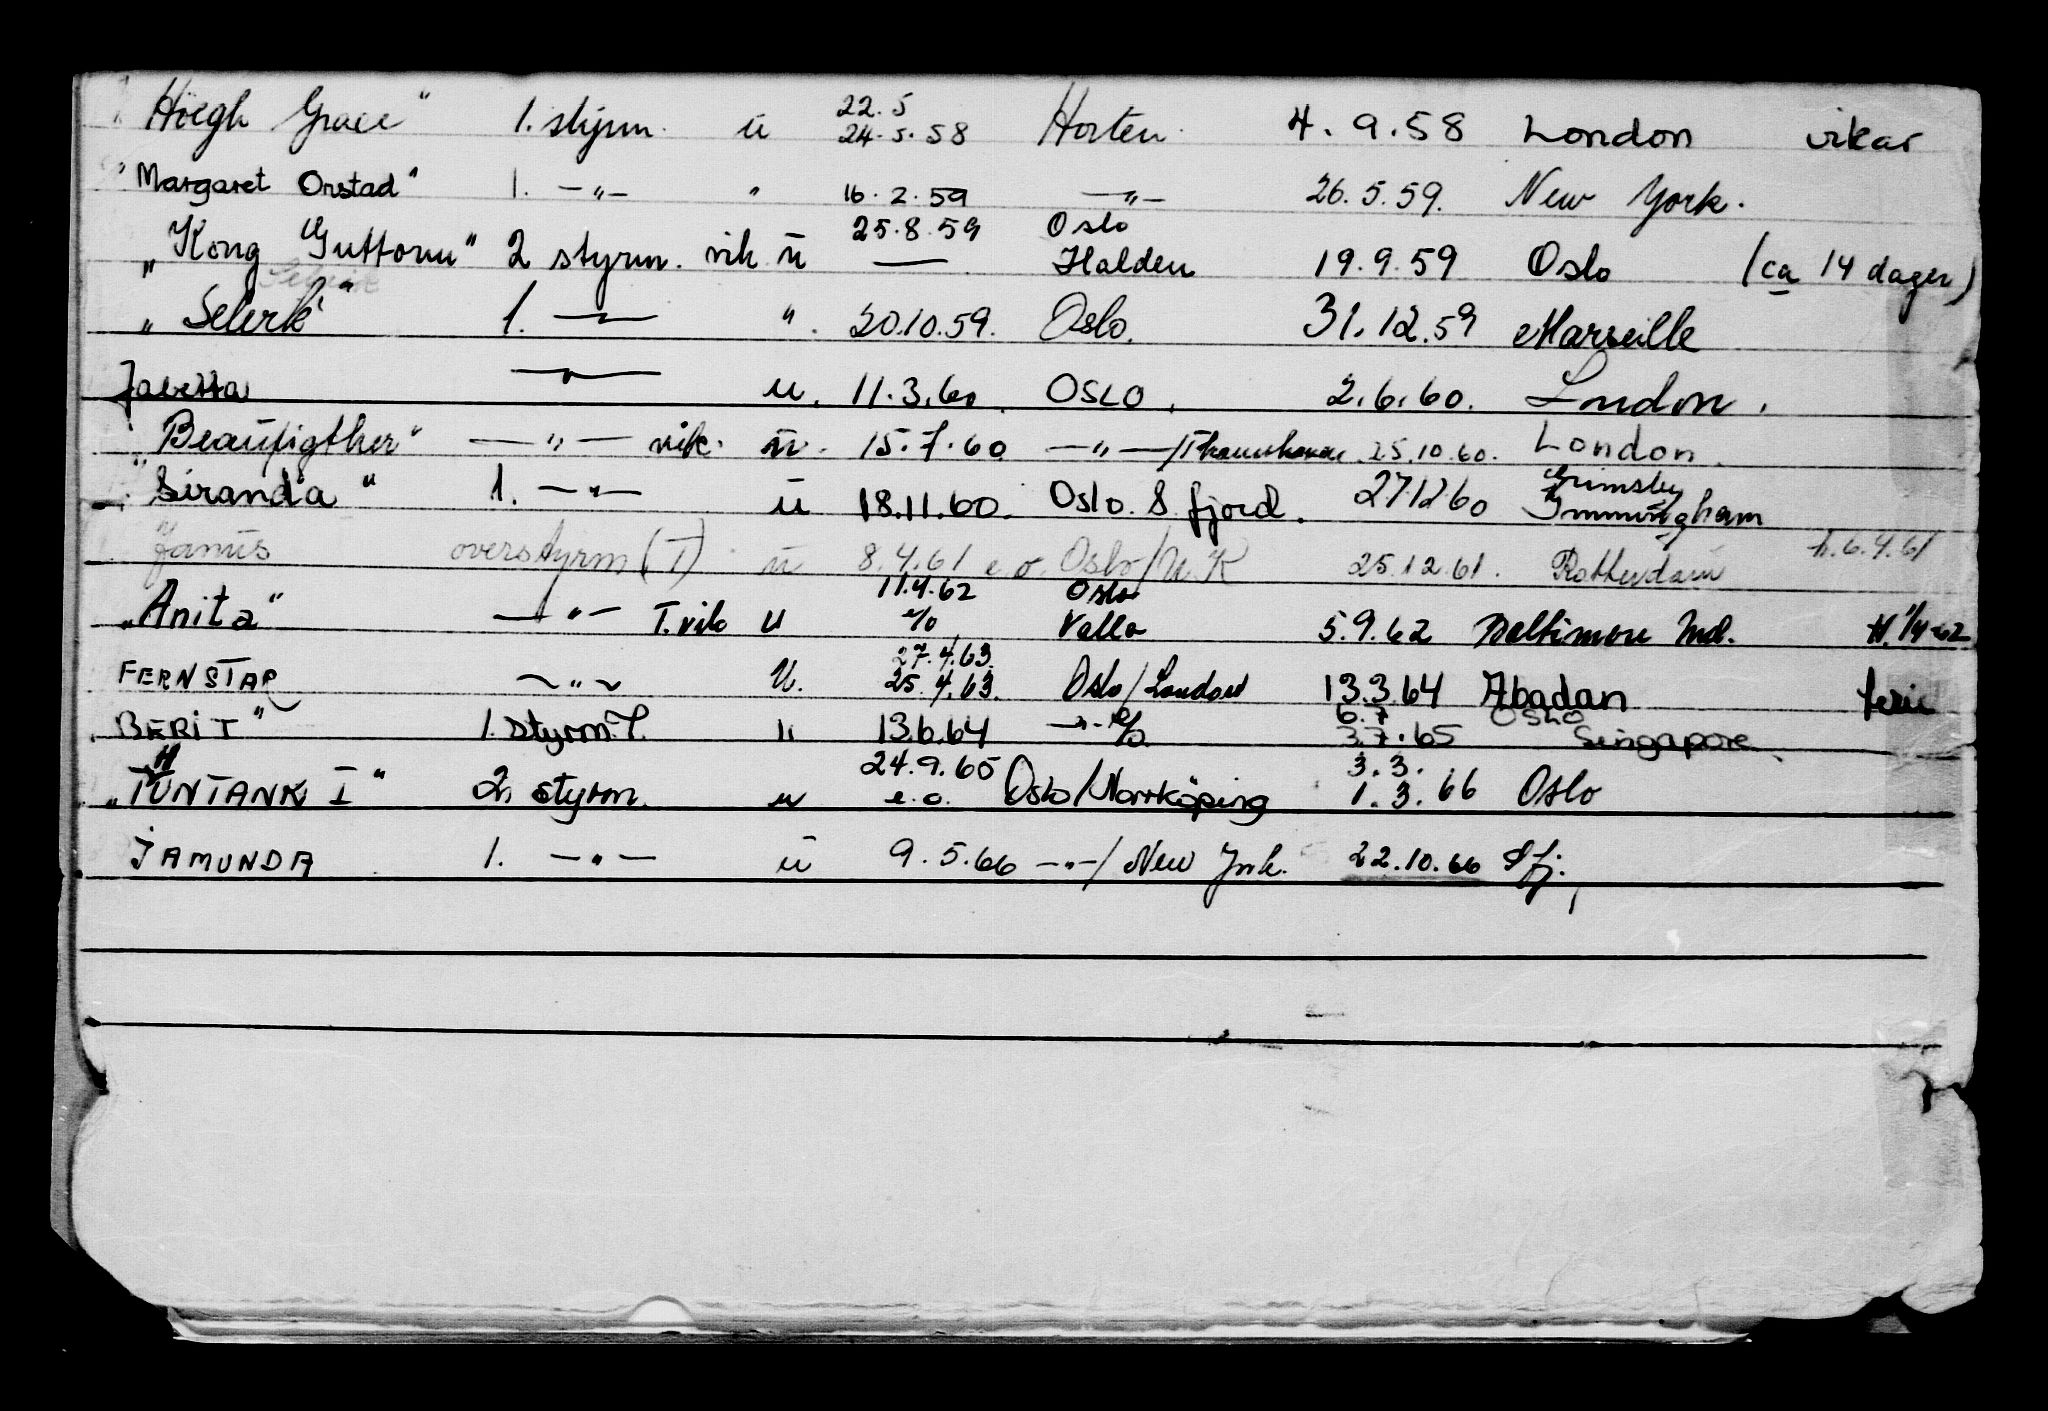 Höegh Grace" 1. styrm. u 22.5 24.5.58 Horten. 4.9.58 London vikar
"Margaret Onstad" 1. —"— " 16.2.59 —"— 26.5.59. New York.
"Kong Guttorm" 2 styrm. vik u 25.8.59 — Oslo Halden 19.9.59 Oslo (ca 14 dager)
"Selerk" 1. —"— ". 20.10.59. Oslo. 31.12.59 Marseille
—"— u. 11.3.60. OSLO. 2.6.60. London.
"Beaufigther" —"— vik. u. 15.7.60 —"—/ 25.10.60. London.
"Siranda" 1. —"— u 18.11.60. Oslo. S. fjord. 27.12.60 Grimsby Immingham
Janus overstyrm (T) u 8.4.61 e.o. Oslo/U.K 25.12.61. Rotterdam h.6.4.61
"Anita" —"— T.vik u 11.4.62 e/o Oslo Vallo 5.9.62 Baltimore Md. H.1/4-62
FERNSTAR —"— U. 27.4.63. 25.4.63. Oslo/London 13.3.64 Abadan ferie
BERIT" 1. styrm T. u 13.6.64 —"— e/o. 6.7 3.7.65 OSLO Singapore
"TÜNTANK I" 2. styrm. u 24.9.65 e.o. Oslo/Norrköping 3.3. 1.3.66 Oslo
JAMUNDA 1. —"— u 9.5.66 —"—/ New York. 22.10.66 Sfj.